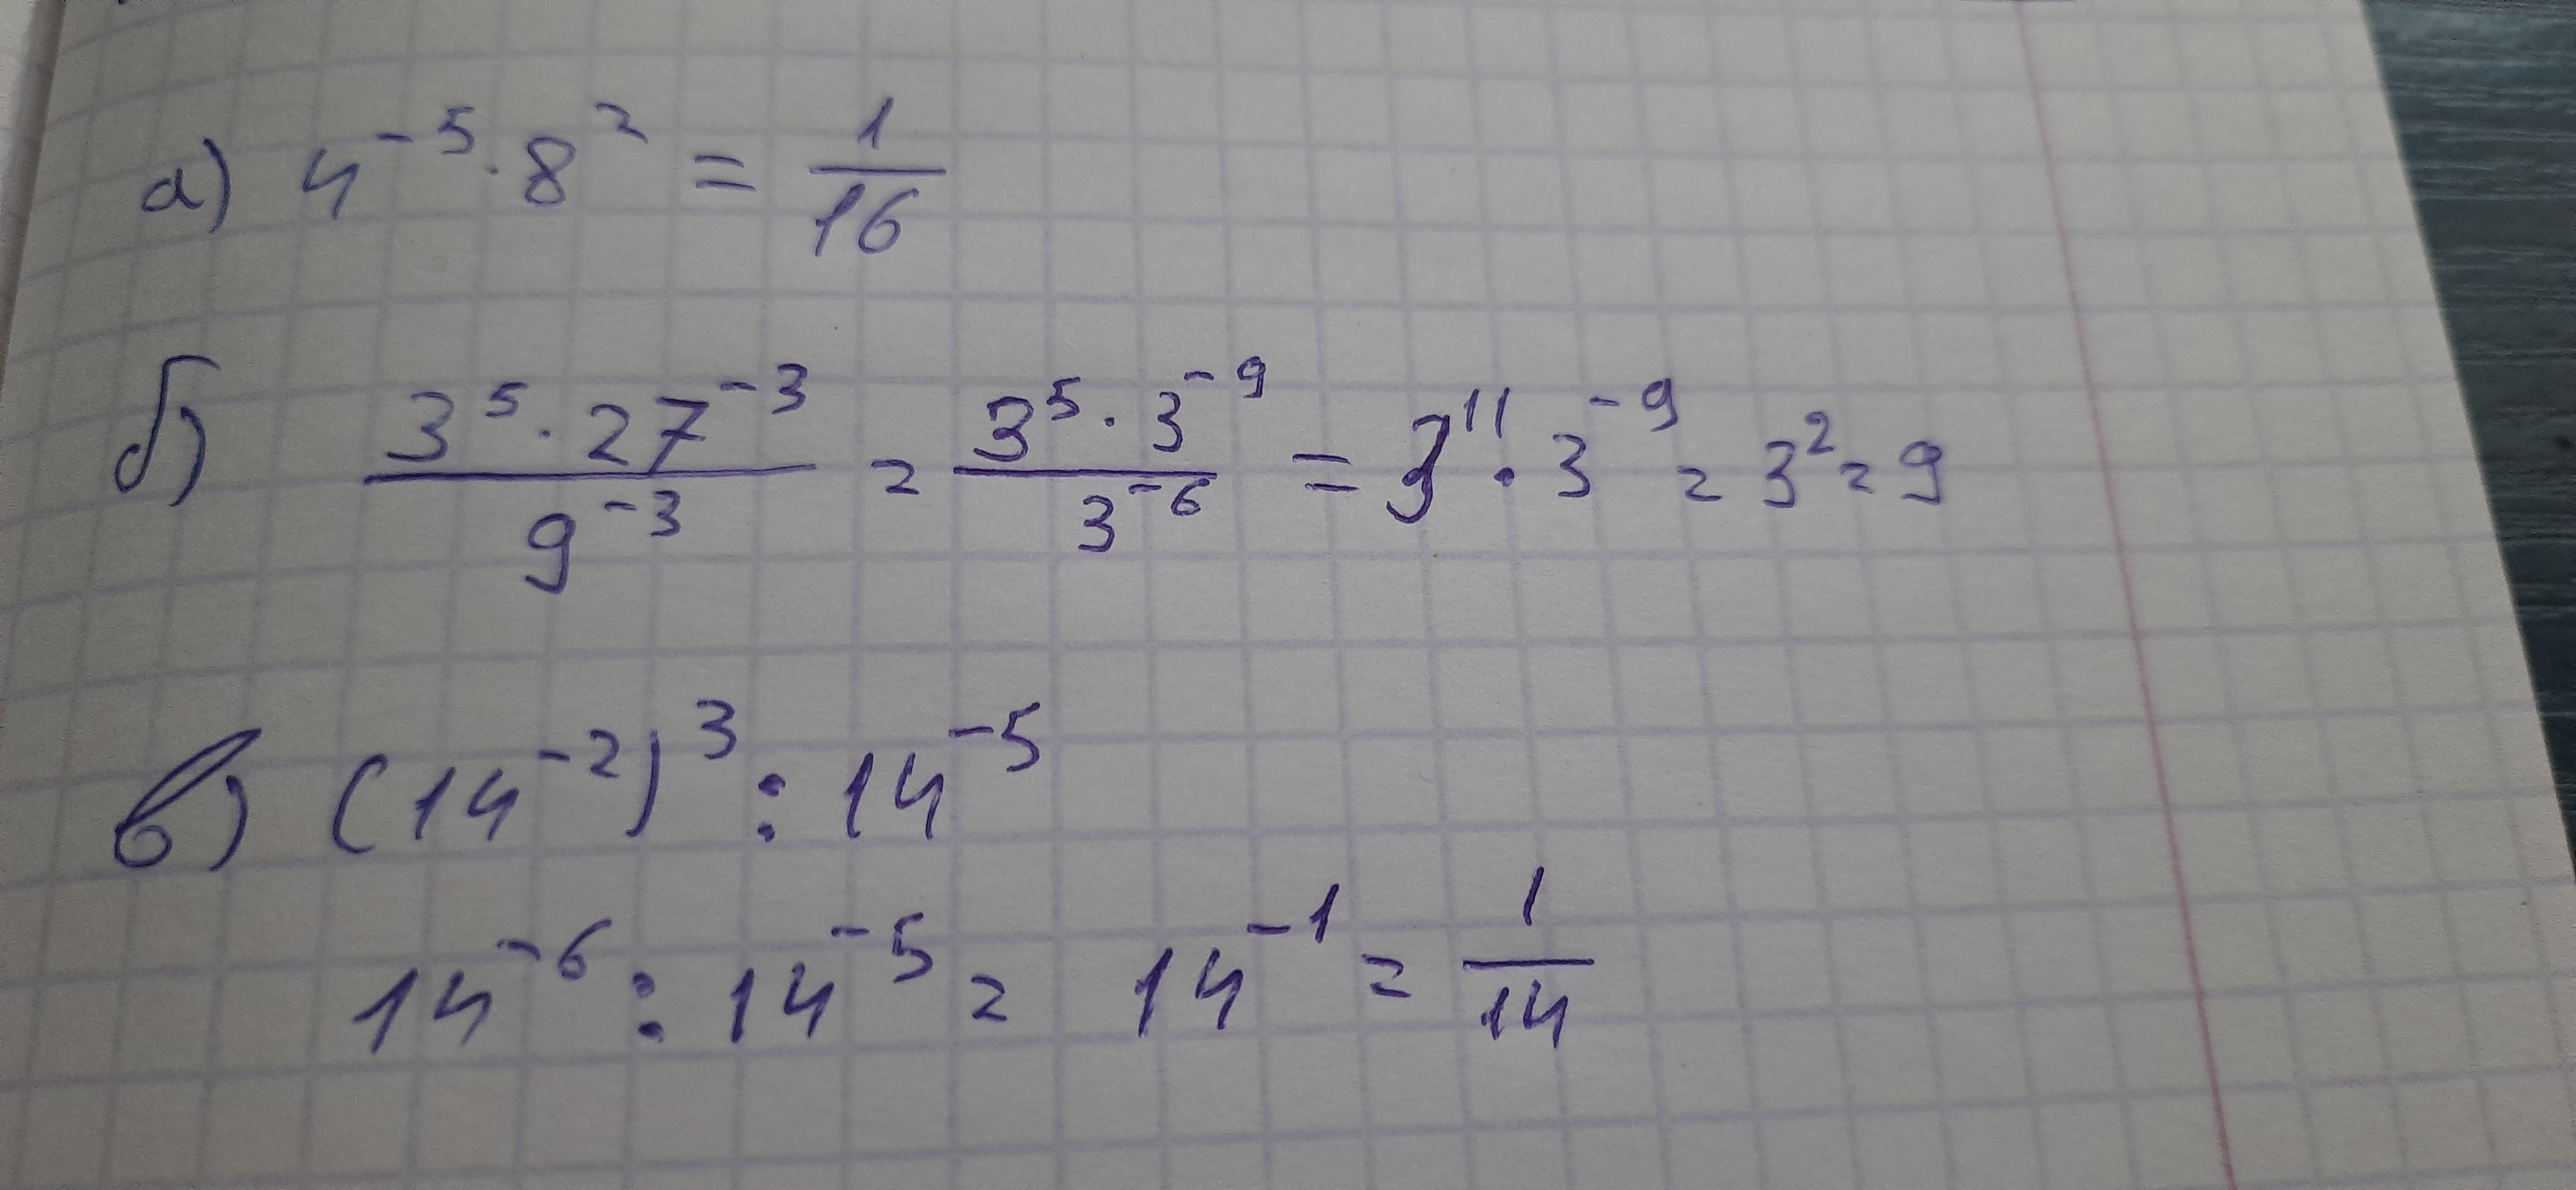 а) 4⁻⁵ · 8² = 1/16
б) (3⁵ · 27⁻³)/9⁻³ = (3⁵ · 3⁻⁹)/3⁻⁶ = 3¹¹ · 3⁻⁹ = 3² = 9
в) (14⁻²)³ : 14⁻⁵
14⁻⁶ : 14⁻⁵ = 14⁻¹ = 1/14